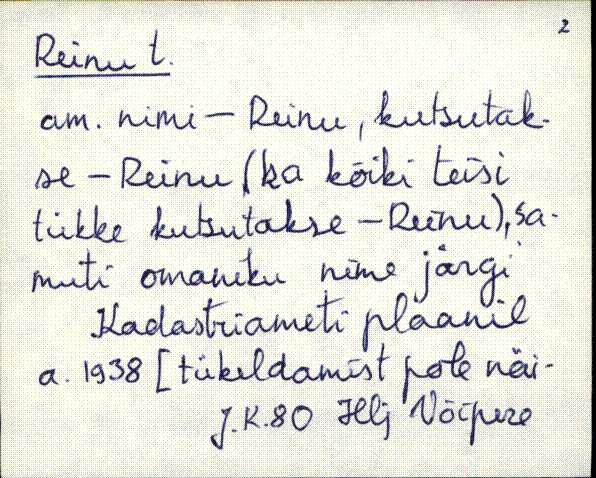 2
Reinu t.
am. nimi – Reinu, kutsutak-
se – Reinu (ka kõiki teisi
tükke kutsutakse – Reinu), sa-
muti omaniku nime järgi
Kadastriameti plaanil
a. 1938 [tükeldamist pole näi-
J.K.80 Hlj Võipere